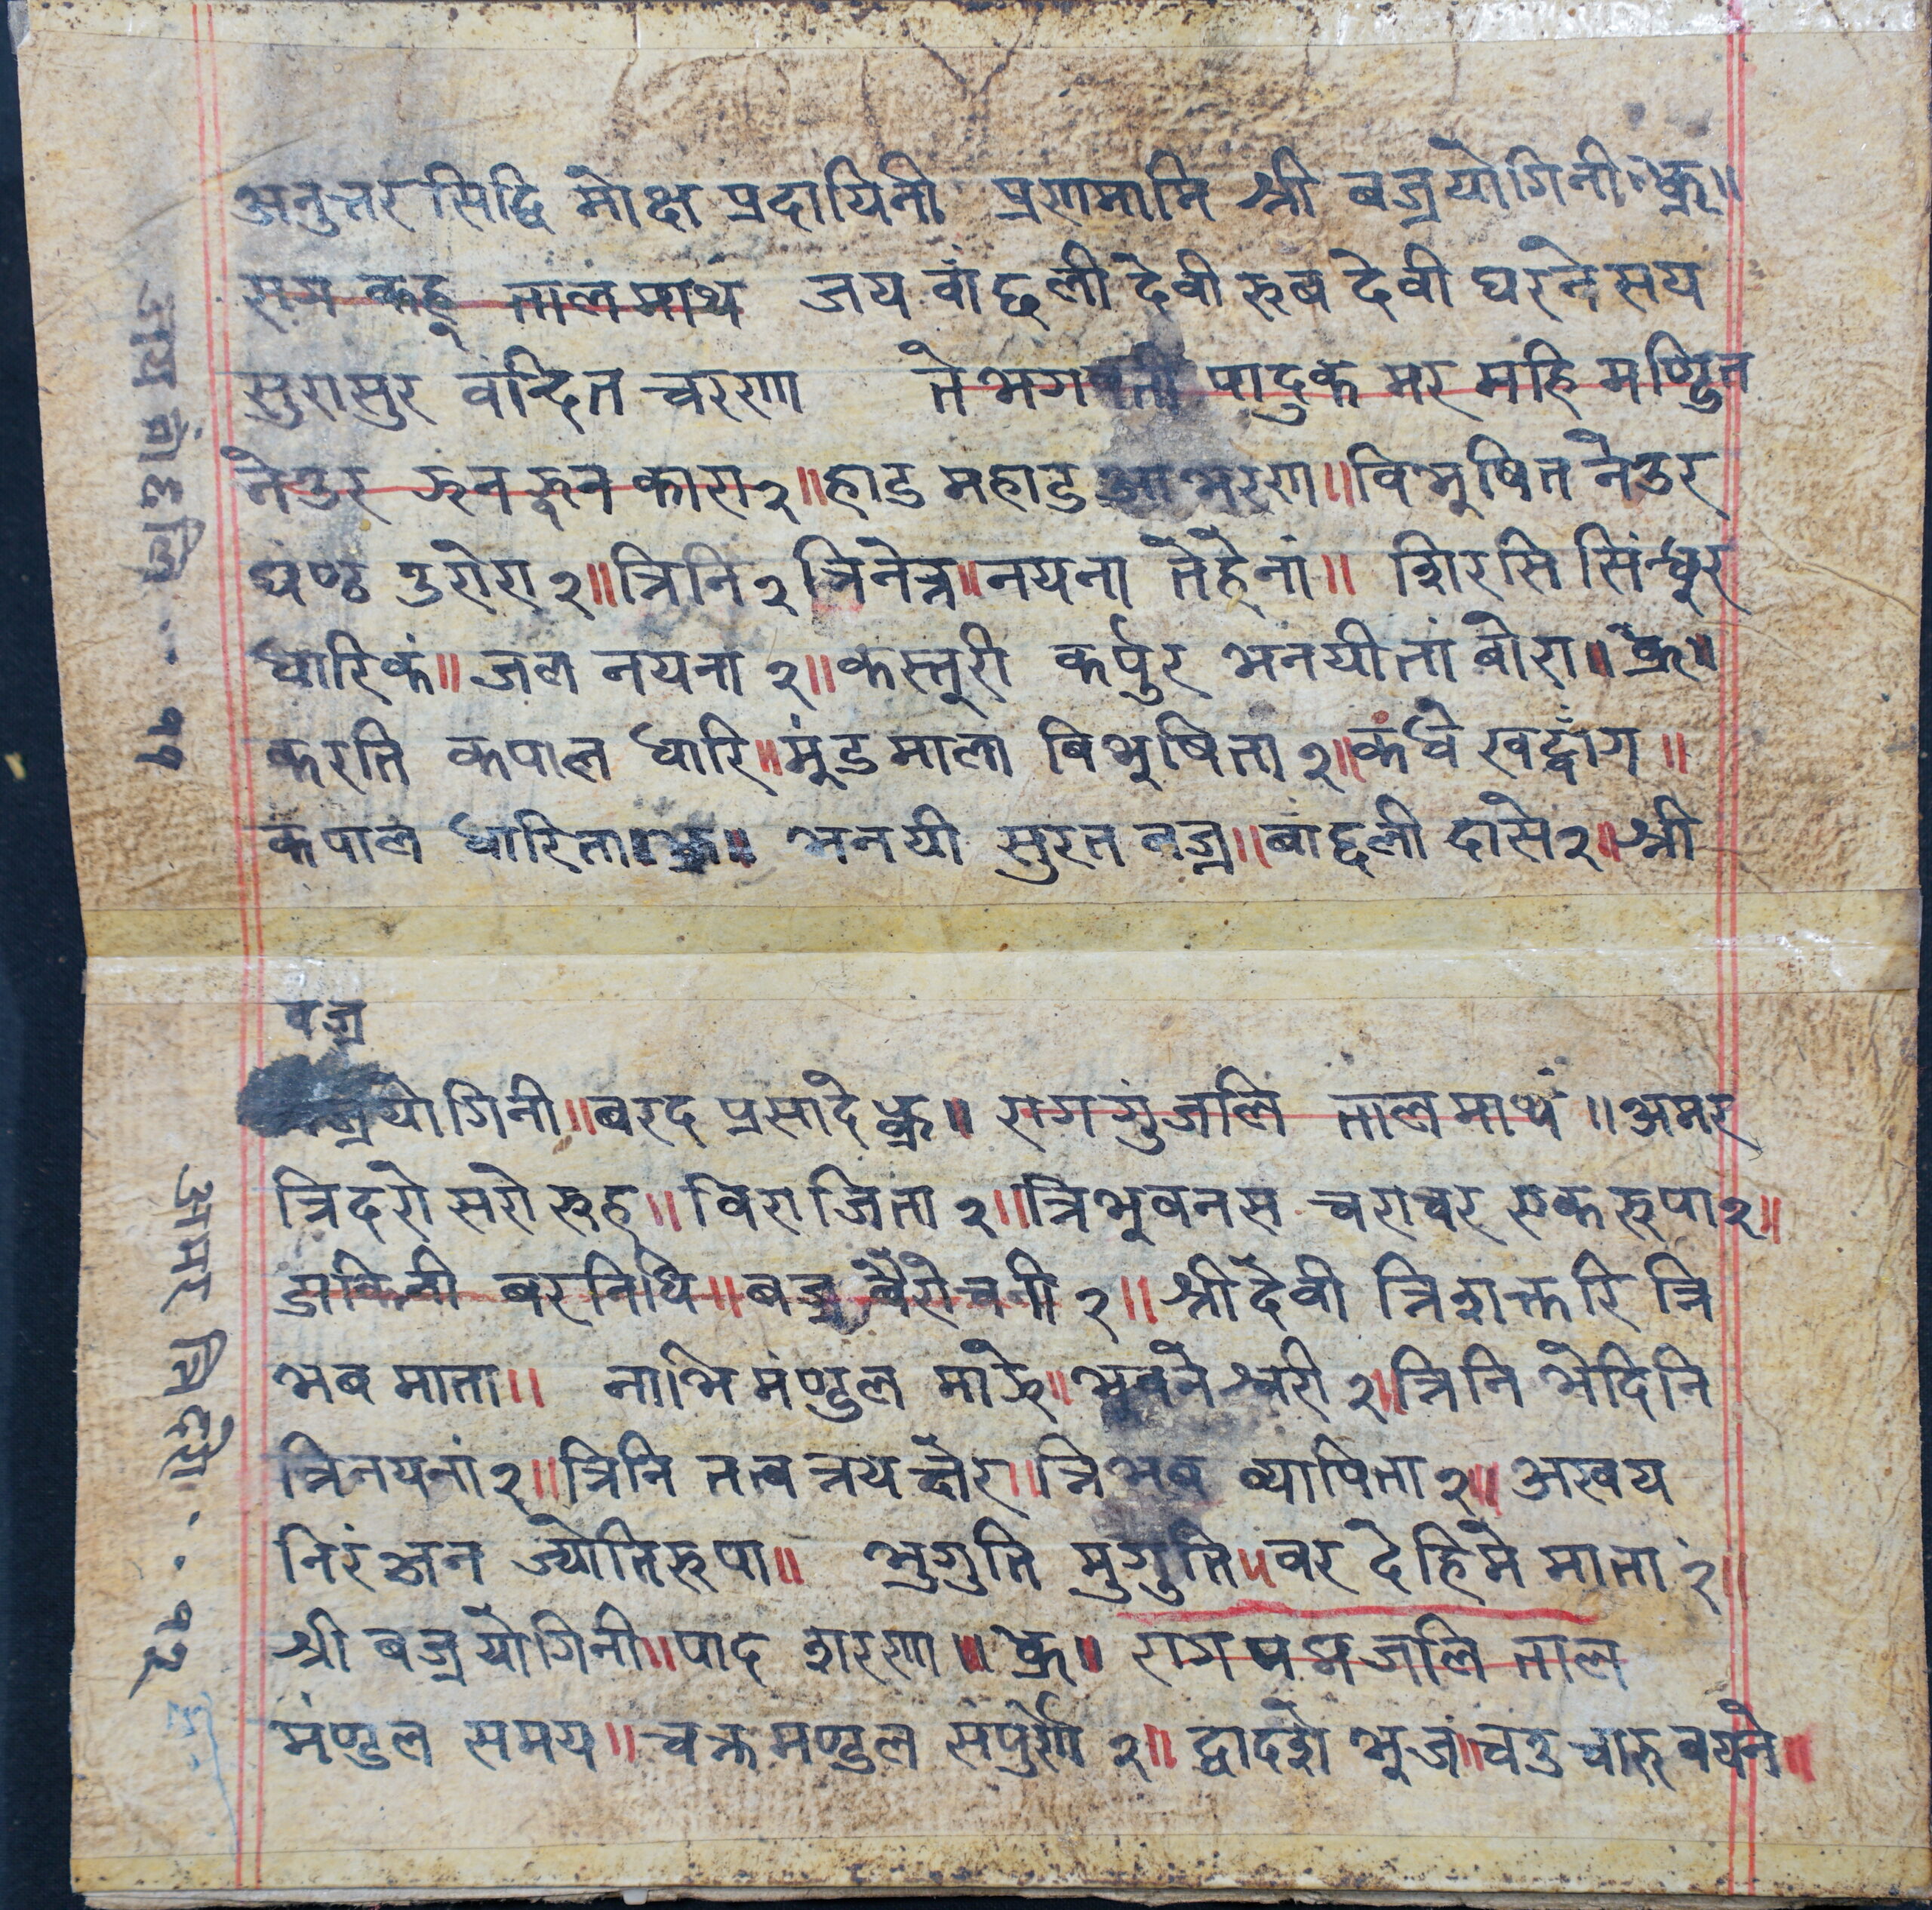 अनुत्तर सिद्धि मोक्ष प्रदायिनी प्रणमामि श्री बज्रयोगिनी ॥ ध्रु ॥
राग कह्नु ताल माथं जय वांछली देवी रुब देवी घरने सय
सुरासुर वंन्दित चरणा ते भगवती पादुक मर महि मण्डित
नेउर रुन झुन कारा २ ॥ हाड महाड आभरणा ॥ विभुषित नेउर
घण्ठ उरोरा २ ॥ त्रिनि २ त्रिनेत्र ॥ नयना तेहेनां ॥ शिरसि सिंन्धुर
धारिकं ॥ जल नयना २ ॥ कस्तुरी कर्पुर भनयी तां बोरा ॥ ध्रु ॥
करति कपाल धारि ॥ मुंड माला बिभुषिता २ ॥ कंधे खट्वांग ॥
कपाल धारिता ॥ ध्रु ॥ भनयी सुरत बज्र ॥ बांछली दासे २ ॥ श्री
बज्र
बज्रयोगिनी ॥ बरद प्रसादे ध्रु ॥ राग गुंजलि ताल माथं ॥ अमर
त्रिदशे सरोरुह ॥ विराजिता २ ॥ त्रिभुबनस चराचर एक रुपा २ ॥
डाकिनी बरनिधि ॥ बज्र बैरोचनी २ ॥ श्री देवी त्रिशक्तरि त्रि
भब माता ॥ नाभि मंण्डल माझे ॥ भुबनेश्वरी २ ॥ त्रिनि भेदिनि
त्रिनयनां २ ॥ त्रिनि तत्व त्रय धोरा ॥ त्रिभब व्यापिता २ ॥ अखय
निरंजन ज्योतिरुपा ॥ भुगुति मुगुति ॥ वर देहिमे माता २ ॥
श्री बज्रयोगिनी ॥ पाद शरणा ॥ ध्रु ॥ राग पद्मजलि ताल
मंण्डल समय ॥ चक्र मण्डल संपुर्णा २ ॥ द्वादशे भुजं ॥ चउ चारु बयने ॥
जय वांछलि . . ११
अमर त्रिदशे . . १२